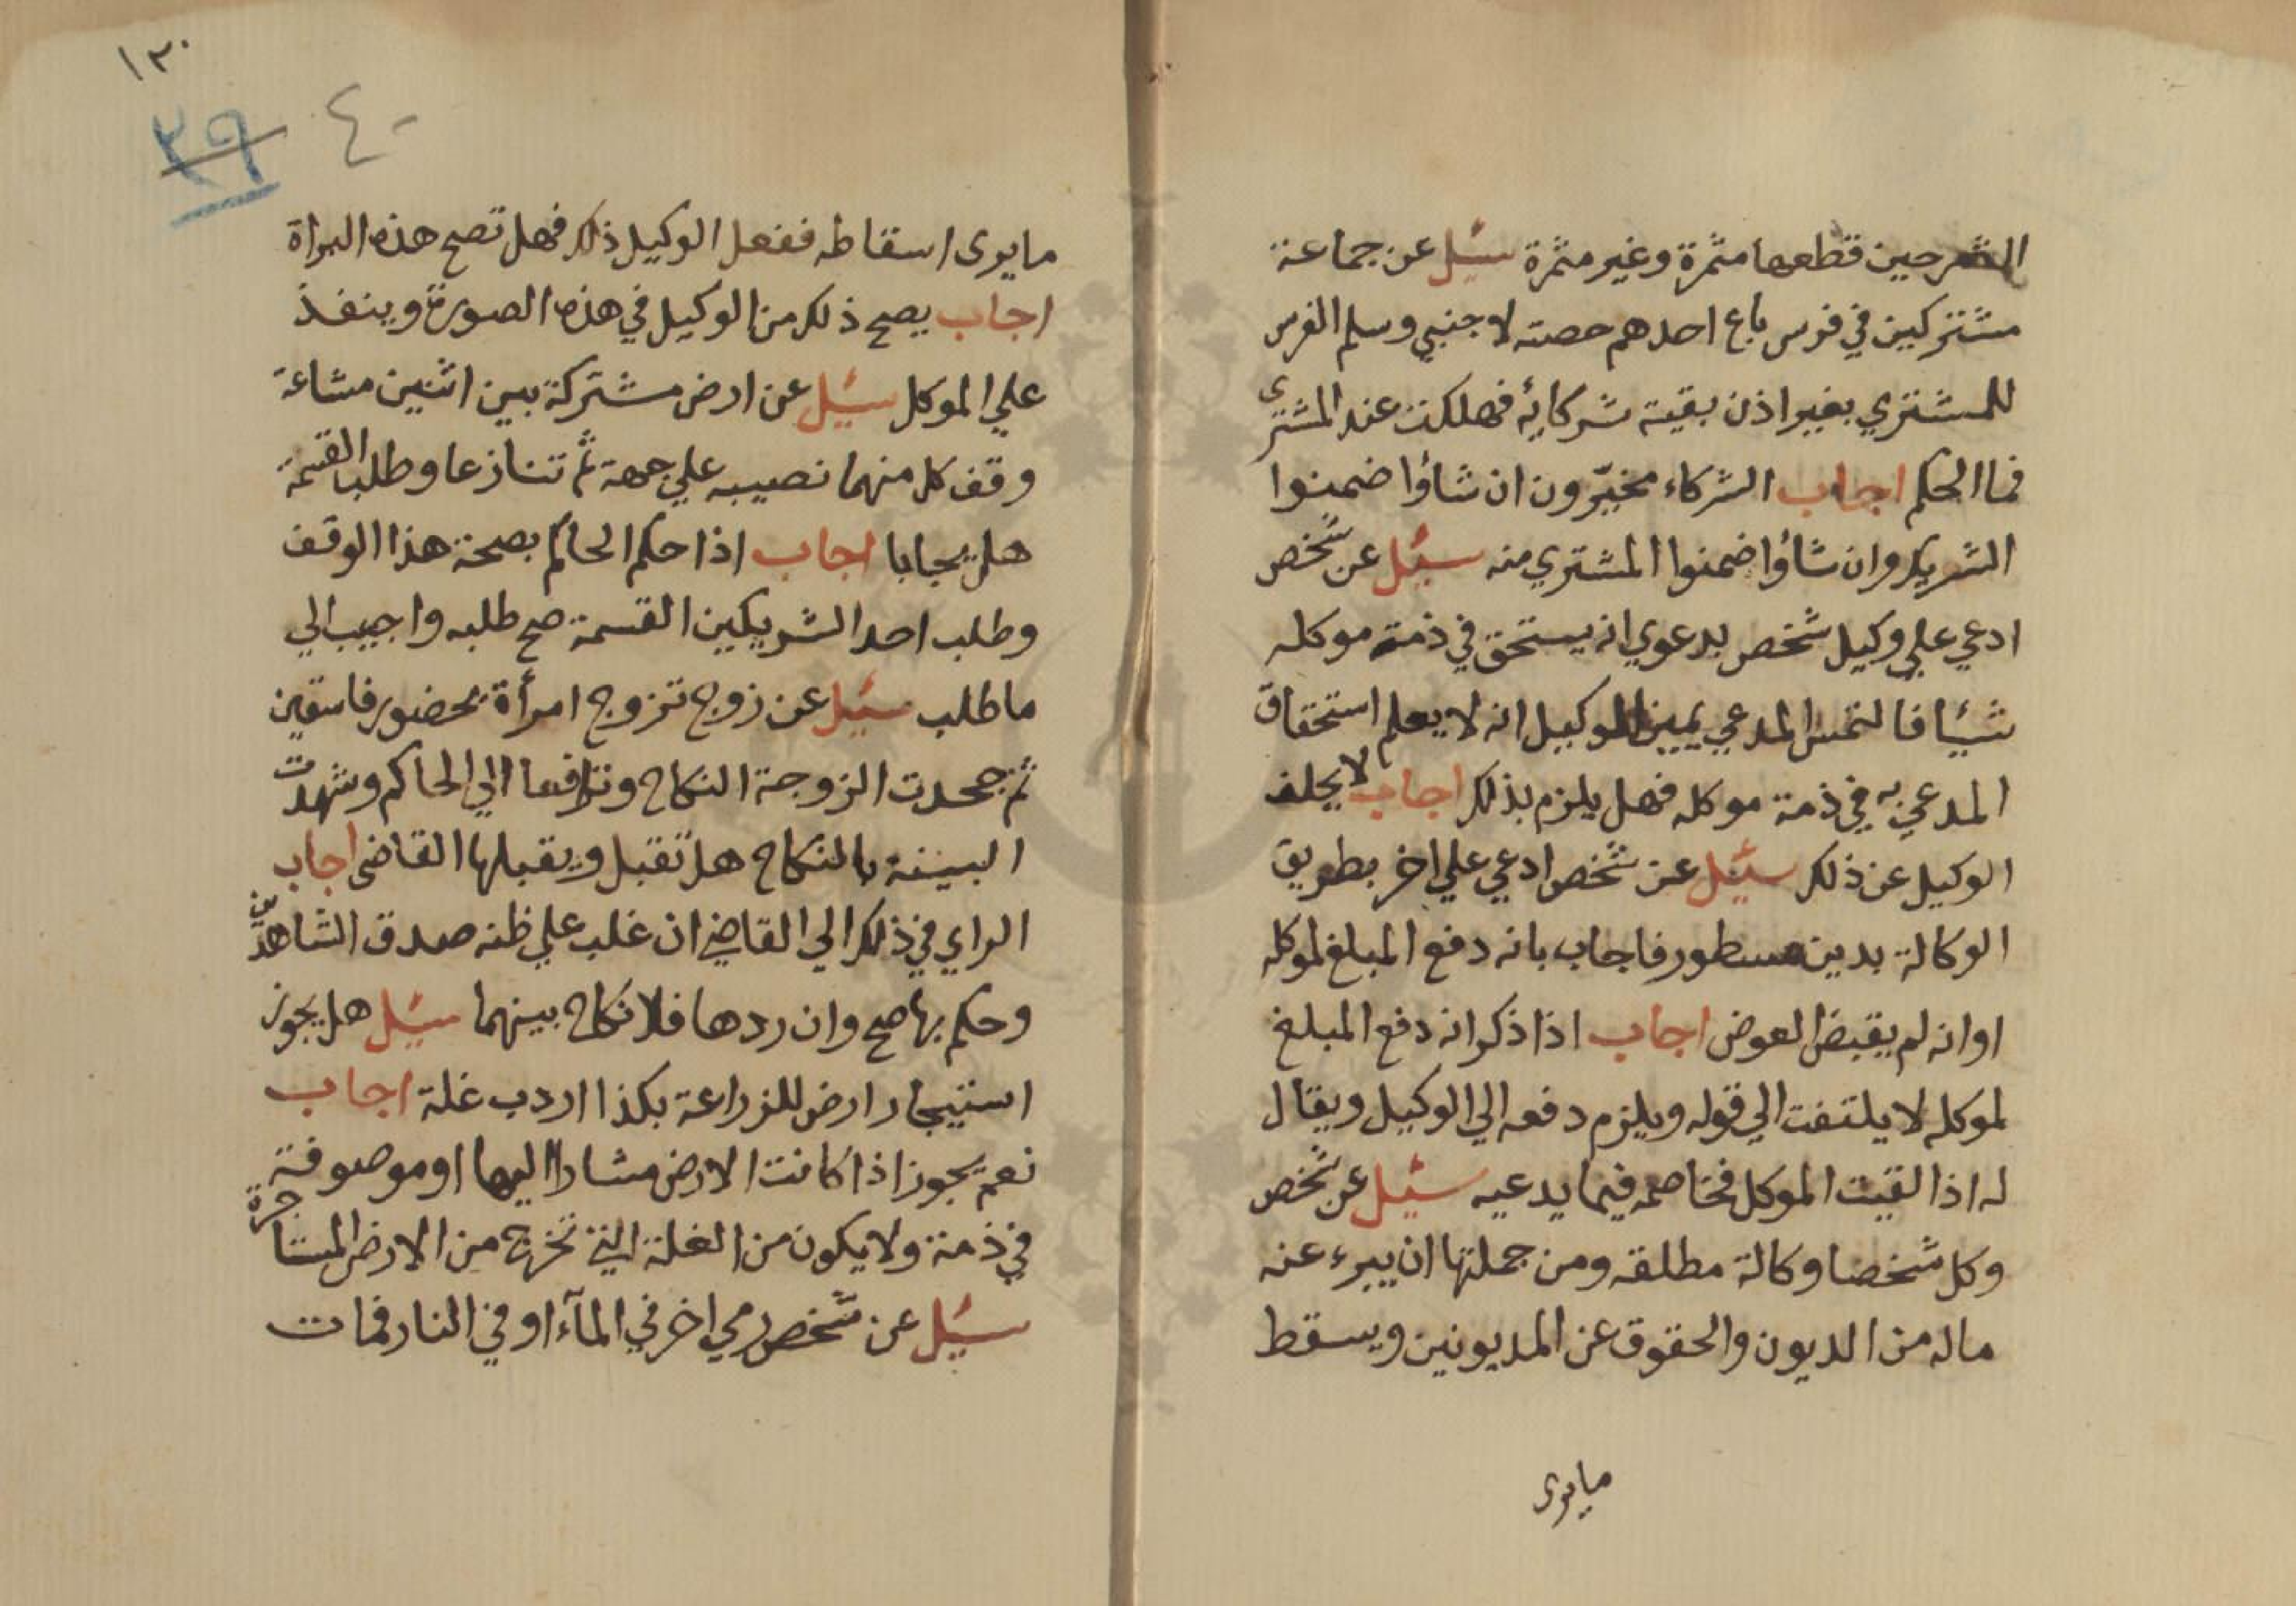 الشجر حين قطعها مثمرة وغير مثمرة سئيل عن جماعة
مشتركين في فرس باع احدهم حصته لاجنبي وسلم الفرس
للمشتري بغير اذن بقية شركائه فهلكت عند المشتري
فما الحكم اجاب الشركاء مخيّرون ان شاؤا ضمنوا
الشريك وان شاؤا ضمنوا المشتري منه سئيل عن شخص
ادعي علي وكيل شخص بدعوي انه يستحق في ذمة موكله
شيئا فالتمس المدعي يمين الوكيل انه لا يعلم استحقاق
المدعي به في ذمة موكله فهل يلزم بذلك اجاب لا يحلف
الوكيل عن ذلك سئيل عن شخص ادعي علي اخر بطريق
الوكالة بدين مسطور فاجاب بانه دفع المبلغ لموكله
او انه لم يقبض العوض اجاب اذا ذكر انه دفع المبلغ
لموكله لا يلتفت الي قوله ويلزم دفعه الي الوكيل ويقال
له اذا لقيت الموكل فخاصمه فيما يدعيه سئيل عن شخص
وكل شخصا وكالة مطلقه ومن جملتها ان يبرء عنه
ماله من الديون والحقوق عن المديونين ويسقط
مايرى
١٣٠
٣٩ ٤٠
مايرى اسقاطه ففعل الوكيل ذلك فهل تصح هذه البراة
اجاب يصح ذلك من الوكيل في هذه الصورة وينفذ
علي الموكل سئيل عن ارض مشتركة بين اثنين مشاعة
وقف كل منهما نصيبه علي جهة ثم تنازعا وطلبا القسمة
هل يجابا اجاب اذا حكم الحاكم بصحة هذا الوقف
وطلب احد الشريكين القسمة صح طلبه واجيب الي
ما طلب سئيل عن زوج تزوج امرأة بحضور فاسقين
ثم جحدت الزوجة النكاح وترافعا الي الحاكم وشهدت
البينة بالنكاح هل تقبل ويقبلها القاضى اجاب
الراي في ذلك الي القاضي ان غلب علي ظنه صدق الشاهدين
وحكم بها صح وان ردها فلا نكاح بينهما سئيل هل يجوز
استيجار ارض للزراعة بكذا اردب غلة اجاب
نعم يجوز اذا كانت الارض مشارا اليها او موصوفة
في ذمة ولا يكون من الغلة التي تخرج من الارض المستاجرة
سئيل عن شخص رمي اخر في المآء او في النار فمات